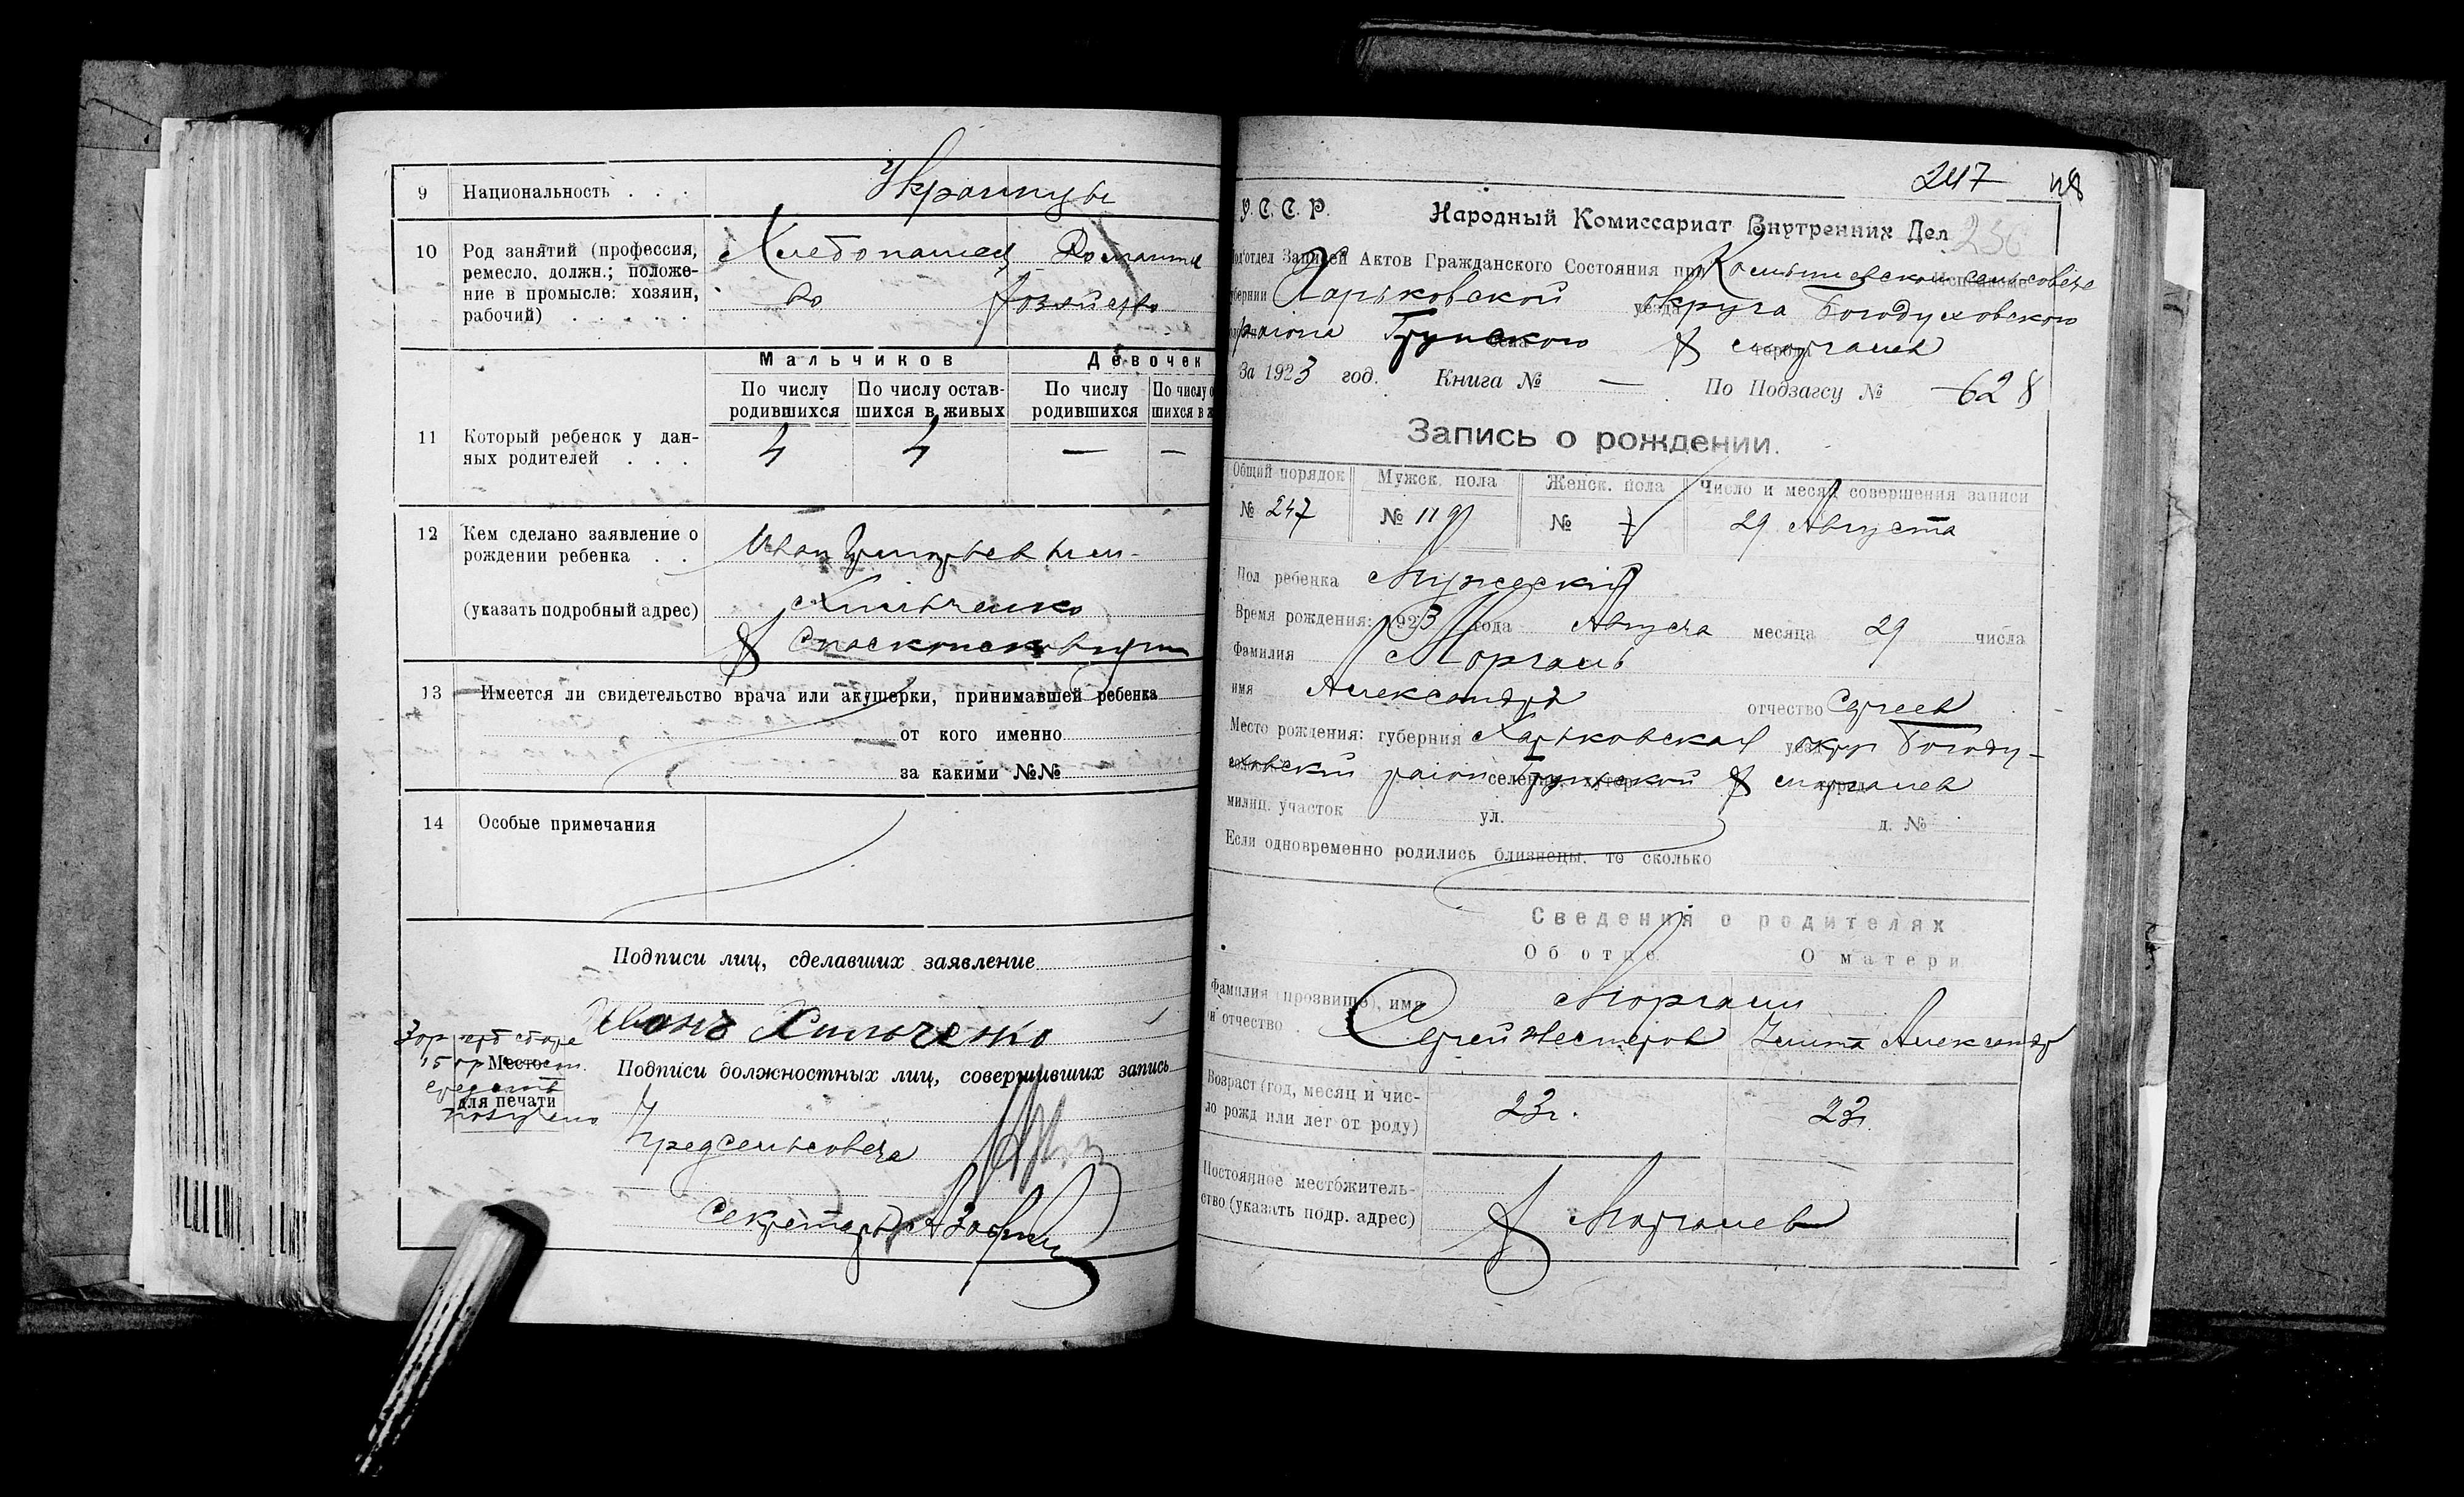 9 Национальность . . . Украинцы
10 Род занятий (профессия, ремесло, должн.; положе-
ние в промысле: хозяин, рабочий) . . . . . Хлебопашец Домашне
во хозяйство
Мальчиков Девочек
По числу родившихся По числу остав-шихся в живых По числу родившихся По числу о шихся в ж
11 Который ребенок у дан-
ных родителей . . . 4 4 — —
12 Кем сделано заявление о
рождении ребенка . . Иван Григорьев
(указать подробный адрес) Хильченко
х
13 Имеется ли свидетельство врача или акушерки, принимавшей ребенка
от кого именно
за какими №№
14 Особые примечания
Подписи лиц, сделавших заявление
Иванъ Хильченко
Место
для печати
Подписи должностных лиц, совершивших запись
Предсельсовета
Секретарь
247 248
236
У. С. С. Р. Народный Комиссариат Внутренних Дел
Под'отдел Записей Актов Гражданского Состояния при сельсовете
губернии Харьковской уезда округа Богодуховского
района х Моргачев
За 1923 год. Книга № — По Подзагсу № 628
Запись о рождении.
Общий порядок Мужск. пола Женск. пола Число и месяц совершения записи
№ 247 № 119 № 29 Августа
Пол ребенка Мужеский
Время рождения: 1923 года Августа месяца 29 числа
Фамилия Моргачь
имя Александръ отчество Сергеев
Место рождения: губерния Харьковская уезд окр Богоду-
ховский район х Моргачев
милиц. участок ул. д. №
Если одновременно родились близнецы, то сколько
Сведения о родителях
Об отце О матери
Фамилия (прозвище), имя Моргачи
и отчество . Сергей Нестеров Александр
Возраст (год, месяц и чис-
ло рожд или лет от роду) 23г. 23г.
Постоянное местожитель-
ство (указать подр. адрес) х Моргачев